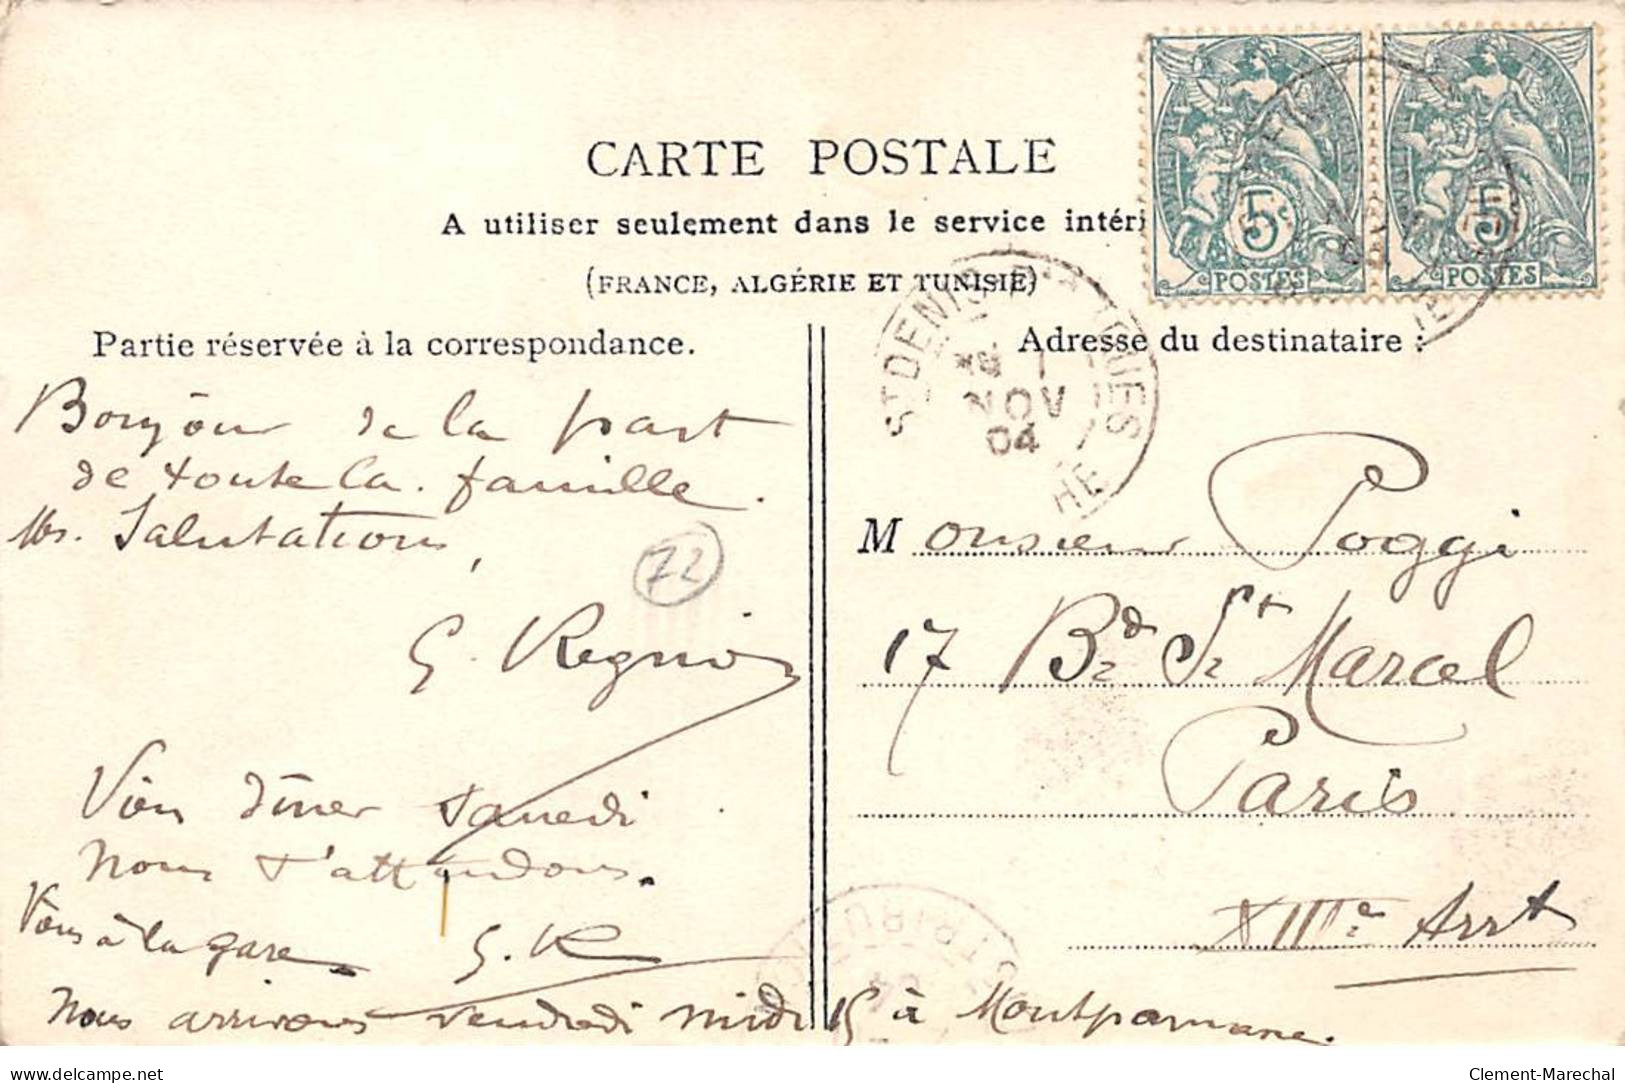 CARTE POSTALE
A utiliser seulement dans le service intéri
(FRANCE, ALGÉRIE ET TUNISIE)
5c
POSTES
5
POSTES
ST DENIS D'ORQUES
1
NOV
04
Partie réservée à la correspondance.
Bonjour de la part
de toute la famille.
Mes Salutations,
72
G. Regnio
Vien dîner samedi
nous t'attendons.
Viens à la gare G. R
Nous arrivons vendredi midi 15 à Montparnasse.
Adresse du destinataire :
Monsieur Poggi
17 Bd St Marcel
Paris
XIIIe Arrt
delcampe.net
Clement-Marechal